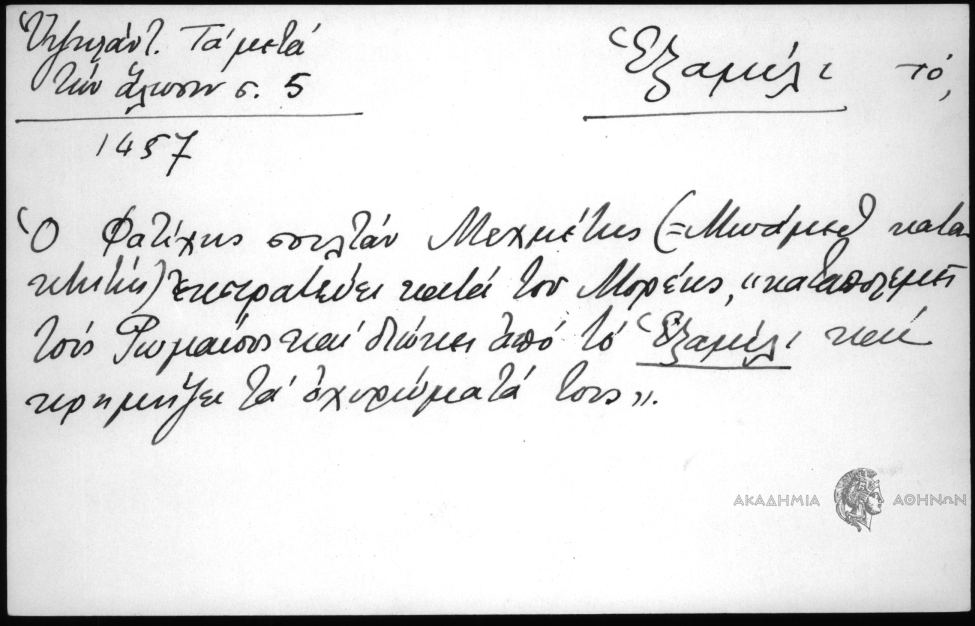 Ὑψηλάντ. Τά μετά
τήν ἅλωσιν σ. 5
Ἑξαμίλι τό,
1457
Ὁ Φατίχης σουλτάν Μεχμέτης (= Μωάμεθ κατα
κτητής) ἐκστρατεύει κατά του Μορέως, "καταπολεμεῖ
τούς Ρωμαίους καί διώκει ἀπό τό Ἑξαμίλι καί
κρημνίζει τά ὀχυρώματά τους".
ΑΚΑΔΗΜΙΑ ΑΘΗΝΩΝ